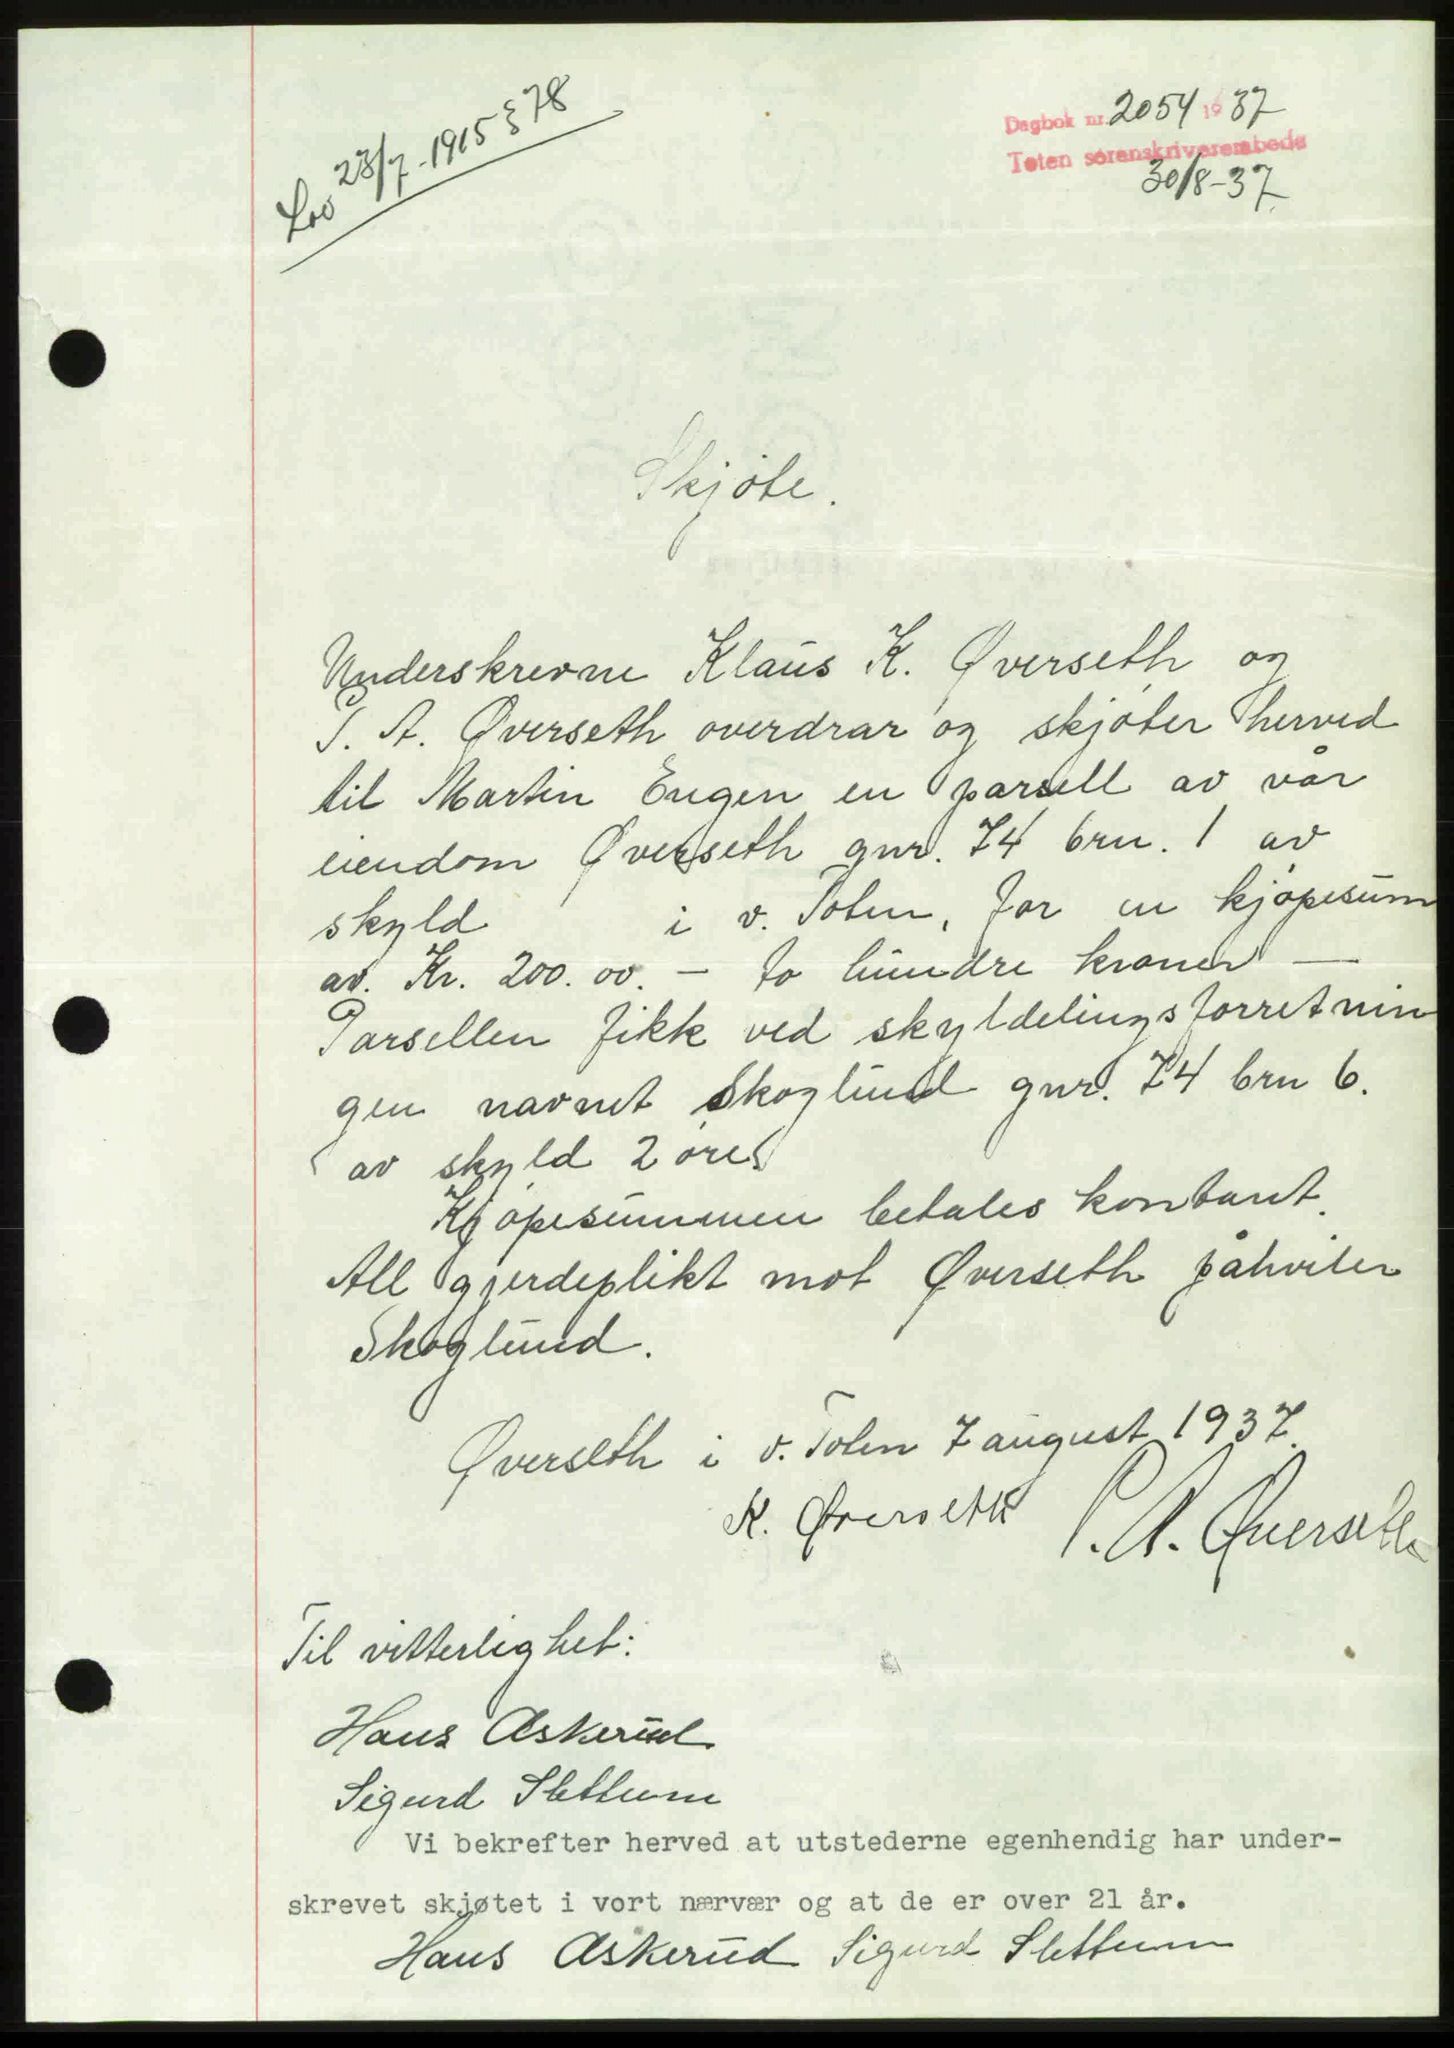 Lov 23/7-1915 § 78
Dagbok nr. 2054 1937
Toten sorenskriverembede
30/8-37.
Skjøte.
Underskrevne Klaus K. Øverseth og
P. A. Øverseth overdrar og skjøter herved
til Martin Engen en parsell av vår
eiendom Øverseth gnr. 74 brn. 1 av
skyld i v. Toten, for en kjøpesum
av Kr. 200.00. - to hundre kroner -
Parsellen fikk ved skyldelingsforretnin
gen navnet Skoglund gnr. 74 brn 6.
av skyld 2 øre.
Kjøpesummen betales kontant.
All gjerdeplikt mot Øverseth påhviler
Skoglund.
Øverseth i v. Toten 7 august 1937.
K. Øverseth P. A. Øverseth
Til vitterlighet:
Hans Askerud
Sigurd Slettum
Vi bekrefter herved at utstederne egenhendig har under-
skrevet skjøtet i vort nærvær og at de er over 21 år.
Hans Askerud Sigurd Slettum